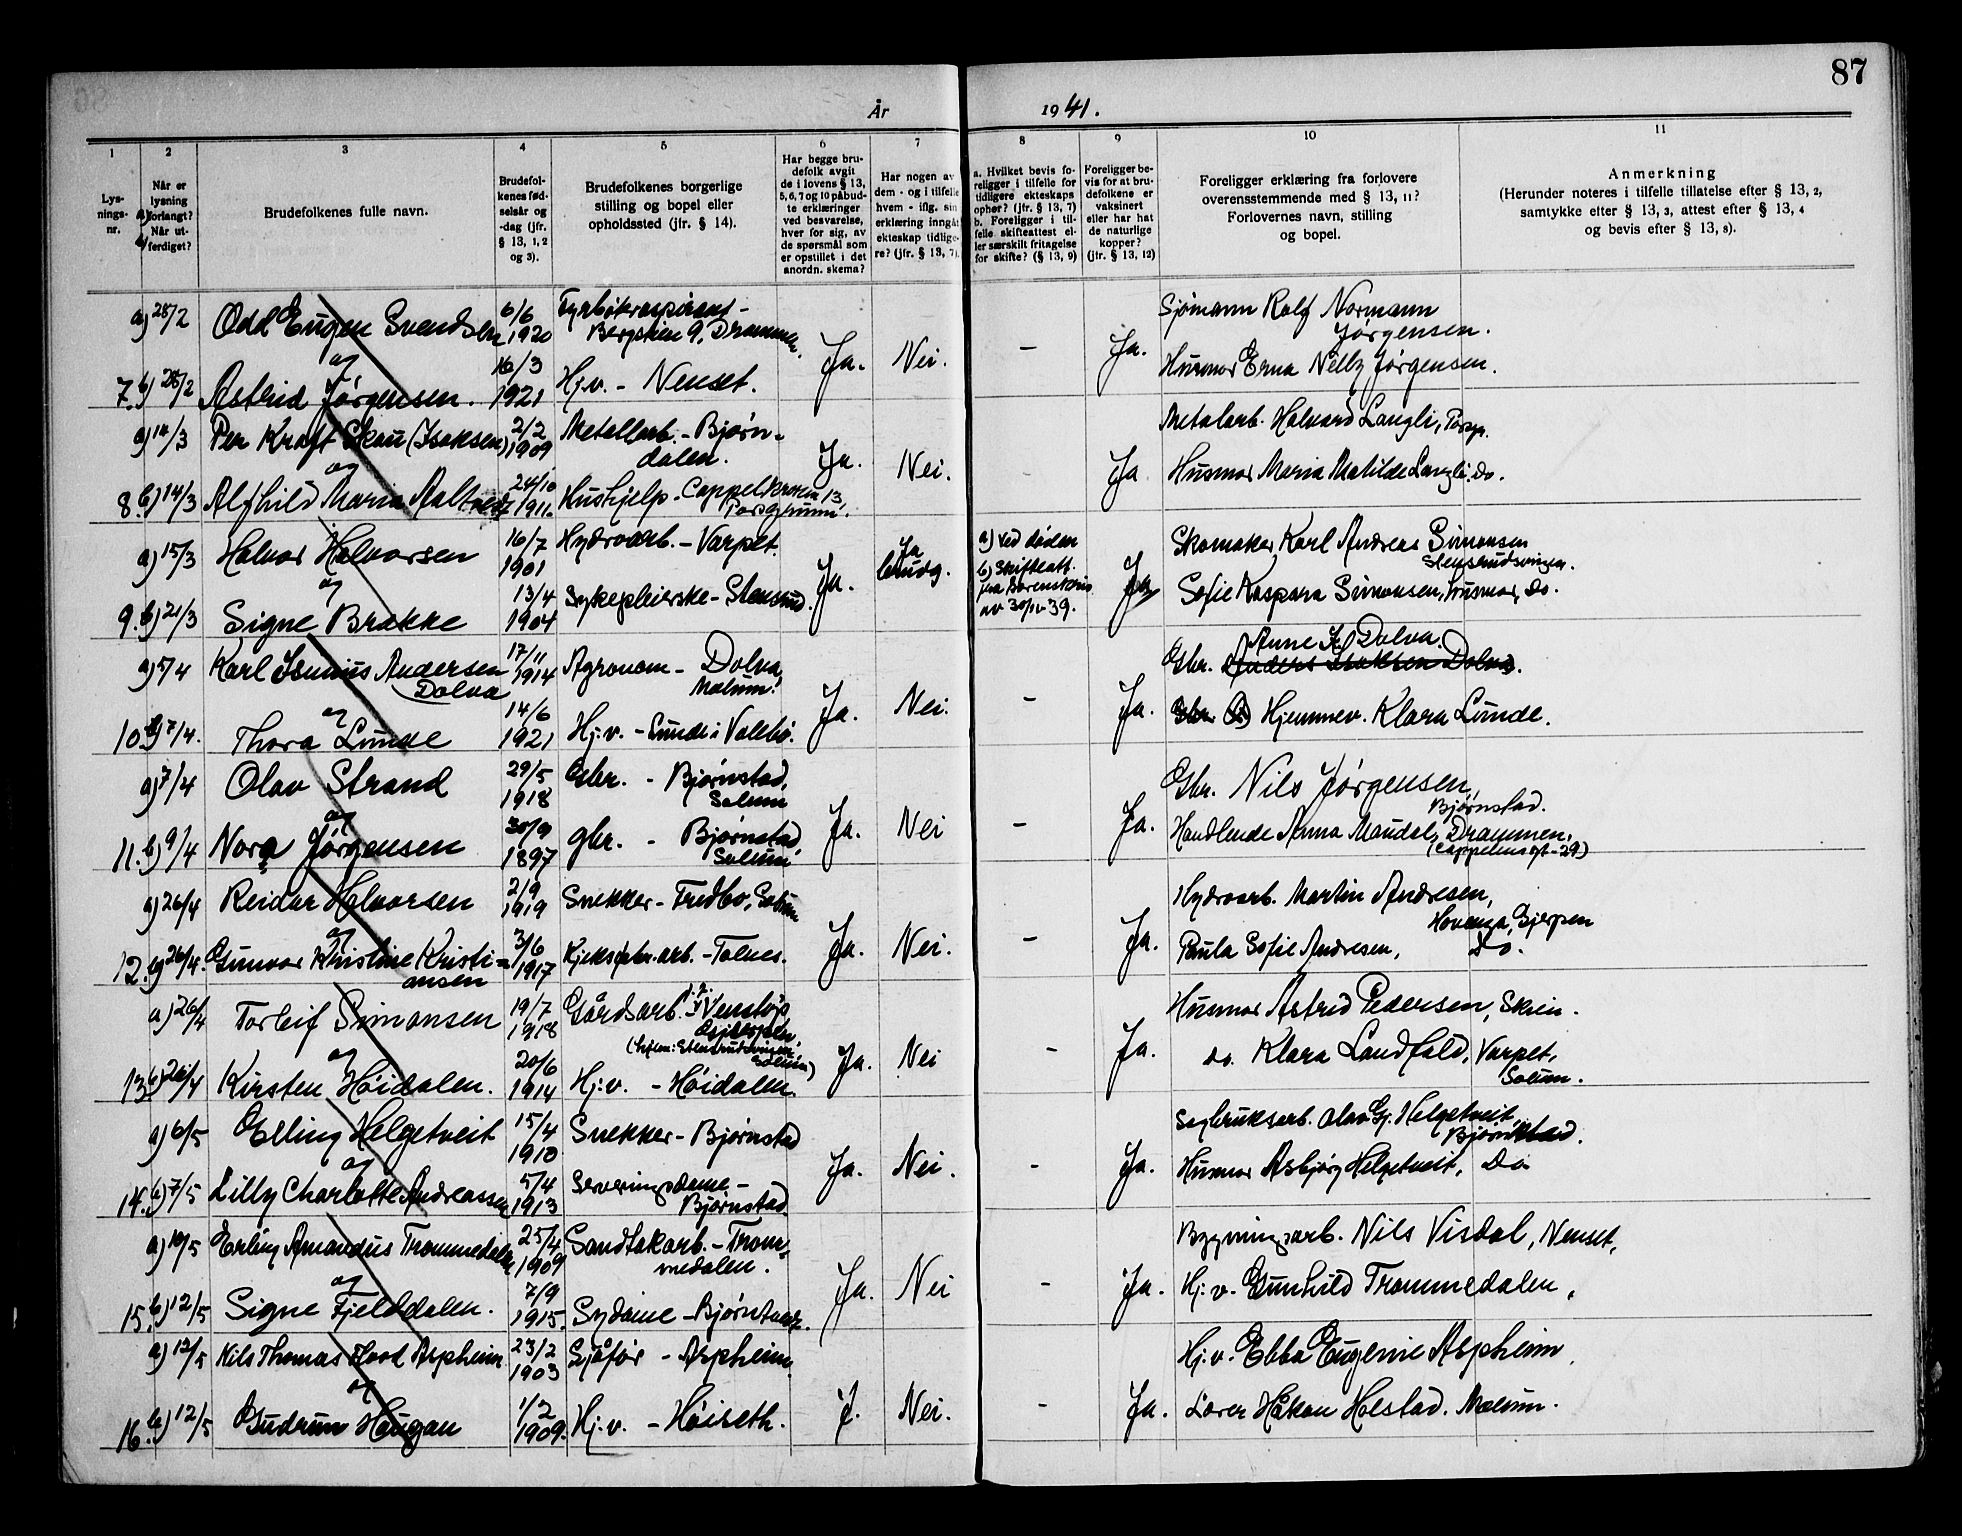 87
År 1941.
1
2
3
4
5
6
7
8
9
10
11
Lys-
nings-
nr.
Når er
lysning
a) forlangt?
Når ut-
b) ferdiget?
Brudefolkenes fulle navn.
Brudefol-
kenes fød-
selsår og
-dag (jfr.
§ 13, 1, 2
og 3).
Brudefolkenes borgerlige
stilling og bopel eller
opholdssted (jfr. § 14).
Har begge bru-
defolk avgit
de i lovens § 13,
5, 6, 7 og 10 påbud-
te erklæringer
ved besvarelse,
hver for sig, av
de spørsmål som
er opstillet i det
anordn. skema?
Har nogen av
dem - og i tilfelle
hvem - iflg. sin
erklæring inngåt
ekteskap tidlige-
re? (jfr. § 13, 7).
a. Hvilket bevis fo-
religger i tilfelle for
tidligere ekteskaps
ophør? (jfr. § 13, 7)
b. Foreligger i til-
felle skifteattest el-
ler særskilt fritagelse
for skifte? (§ 13, 9)
Foreligger be-
vis for at bru-
defolkene er
vaksinert
eller har hat
de naturlige
kopper?
(jfr. § 13, 12)
Foreligger erklæring fra forlovere
overensstemmende med § 13, 11?
Forlovernes navn, stilling
og bopel.
Anmerkning
(Herunder noteres i tilfelle tillatelse efter § 13, 2,
samtykke efter § 13, 3, attest efter § 13, 4
og bevis efter § 13, 8).
a) 28/2 Odd Eugen Svendsen 6/6 1920 Fyrbøteraspirant -
Bergstien 9, Drammen.
og
7. b) 28/2 Astrid Jørgensen. 16/3 1921 Hj.v. - Nenset.
Ja. Nei. - Ja.
Sjømann Rolf Normann
Jørgensen.
Husmor Erna Nelly Jørgensen.
a) 14/3 Per Kraft Skau (Isaksen) 2/2 1909 Metallarb. - Bjørn-
dalen.
og
8. b) 14/3 Alfhild Maria Aaltvedt 24/10 1911. Hushjelp - 13,
Porsgrunn.
Ja. Nei. - Ja
Metalarb. Halvard Langli, Porsgr.
Husmor Maria Matilde Langli. do.
a) 15/3 Halvor Halvorsen 16/7 1901 Hydroarb. - Varpet.
og
9. b) 21/3 Signe Brakke 13/4 1904 Sykepleierske - Stensrud.
Ja. Ja
brudg.
a) ved døden
b) Skifteatt.
fra
av 39.
Ja
Skomaker Karl Andreas Simonsen
Stensrudsvingen.
Sofie Kaspara Simonsen, husmor, do.
a) 5/4 Karl Andersen
Dolva 17/11 1914 Agronom - Dolva,
Melum.
og
10. b) 7/4. Thora Lunde 14/6 1921 Hj.v. - Lunde i Valebø.
Ja. Nei. - Ja.
Anne K. Dolva.
Gbr. Anders Isaksen Dolva.
Gbr. Hjemmev. Klara Lunde.
a) 7/4 Olav Strand 29/5 1918 Gbr. - Bjørnstad,
Solum
og
11. b) 9/4 Nora Jørgensen 30/9 1897 gbr. - Bjørnstad
Solum
Ja. Nei - Ja.
Gbr. Nils Jørgensen,
Bjørnstad.
Handlende Anna Maudal, Drammen.
(Cappelensgt - 29)
a) 26/4 Reidar Halvorsen 2/9 1919 Snekker - Fredbo, Solum
og
12. b) 26/4. Gunvor Kristine Kristi-
ansen 3/6 1917 Kjeksfabr.arb. - Tolnes.
Ja. Nei. - Ja.
Hydroarb. Martin Andresen,
Hovenga, Gjerpen
Paula Sofie Andresen, do.
a) 26/4 Torleif Simonsen 19/7 1918 Gårdsarb. Venstøp
(hjem: Stensrudsvingen,
Solum)
og
13. b) 26/4 Kirsten Høidalen. 20/6 1914 Hj.v. - Høidalen.
Ja. Nei - Ja.
Husmor Astrid Pedersen, Skien.
do. Klara Landfald, Varpet,
Solum.
a) 6/5 Elling Helgetveit 15/4 1910 Snekker - Bjørnstad
og
14. b) 7/5 Lilly Charlotte Andreassen 5/4 1913 Serveringsdame -
Bjørnstad
Ja. Nei. - Ja.
Sagbruksarb. Olav Gj. Helgetveit,
Bjørnstad.
Husmor Asbjørg Helgetveit, do
a) 10/5 Erling Amandus Trommedalen 25/4 1909 Sandtakarb. - Trom-
medalen.
og
15. b) 12/5 Signe Fjelddalen. 7/9 1915. Sydame - Bjørnstad.
Ja. Nei - Ja.
Bygningsarb. Nils Visdal, Nenset,
Hj.v. Gunhild Trommedalen,
a) 12/5 Nils Thomas Flood Aspheim 23/2 1903 Sjåfør - Aspheim.
og
16. b) 12/5 Gudrun Haugan 1/2 1909. Hj.v. - Høiseth.
J. Nei. - Ja.
Hj.v. Ebba Eugenie Aspheim
Lærer Håkon Holstad. Melum.